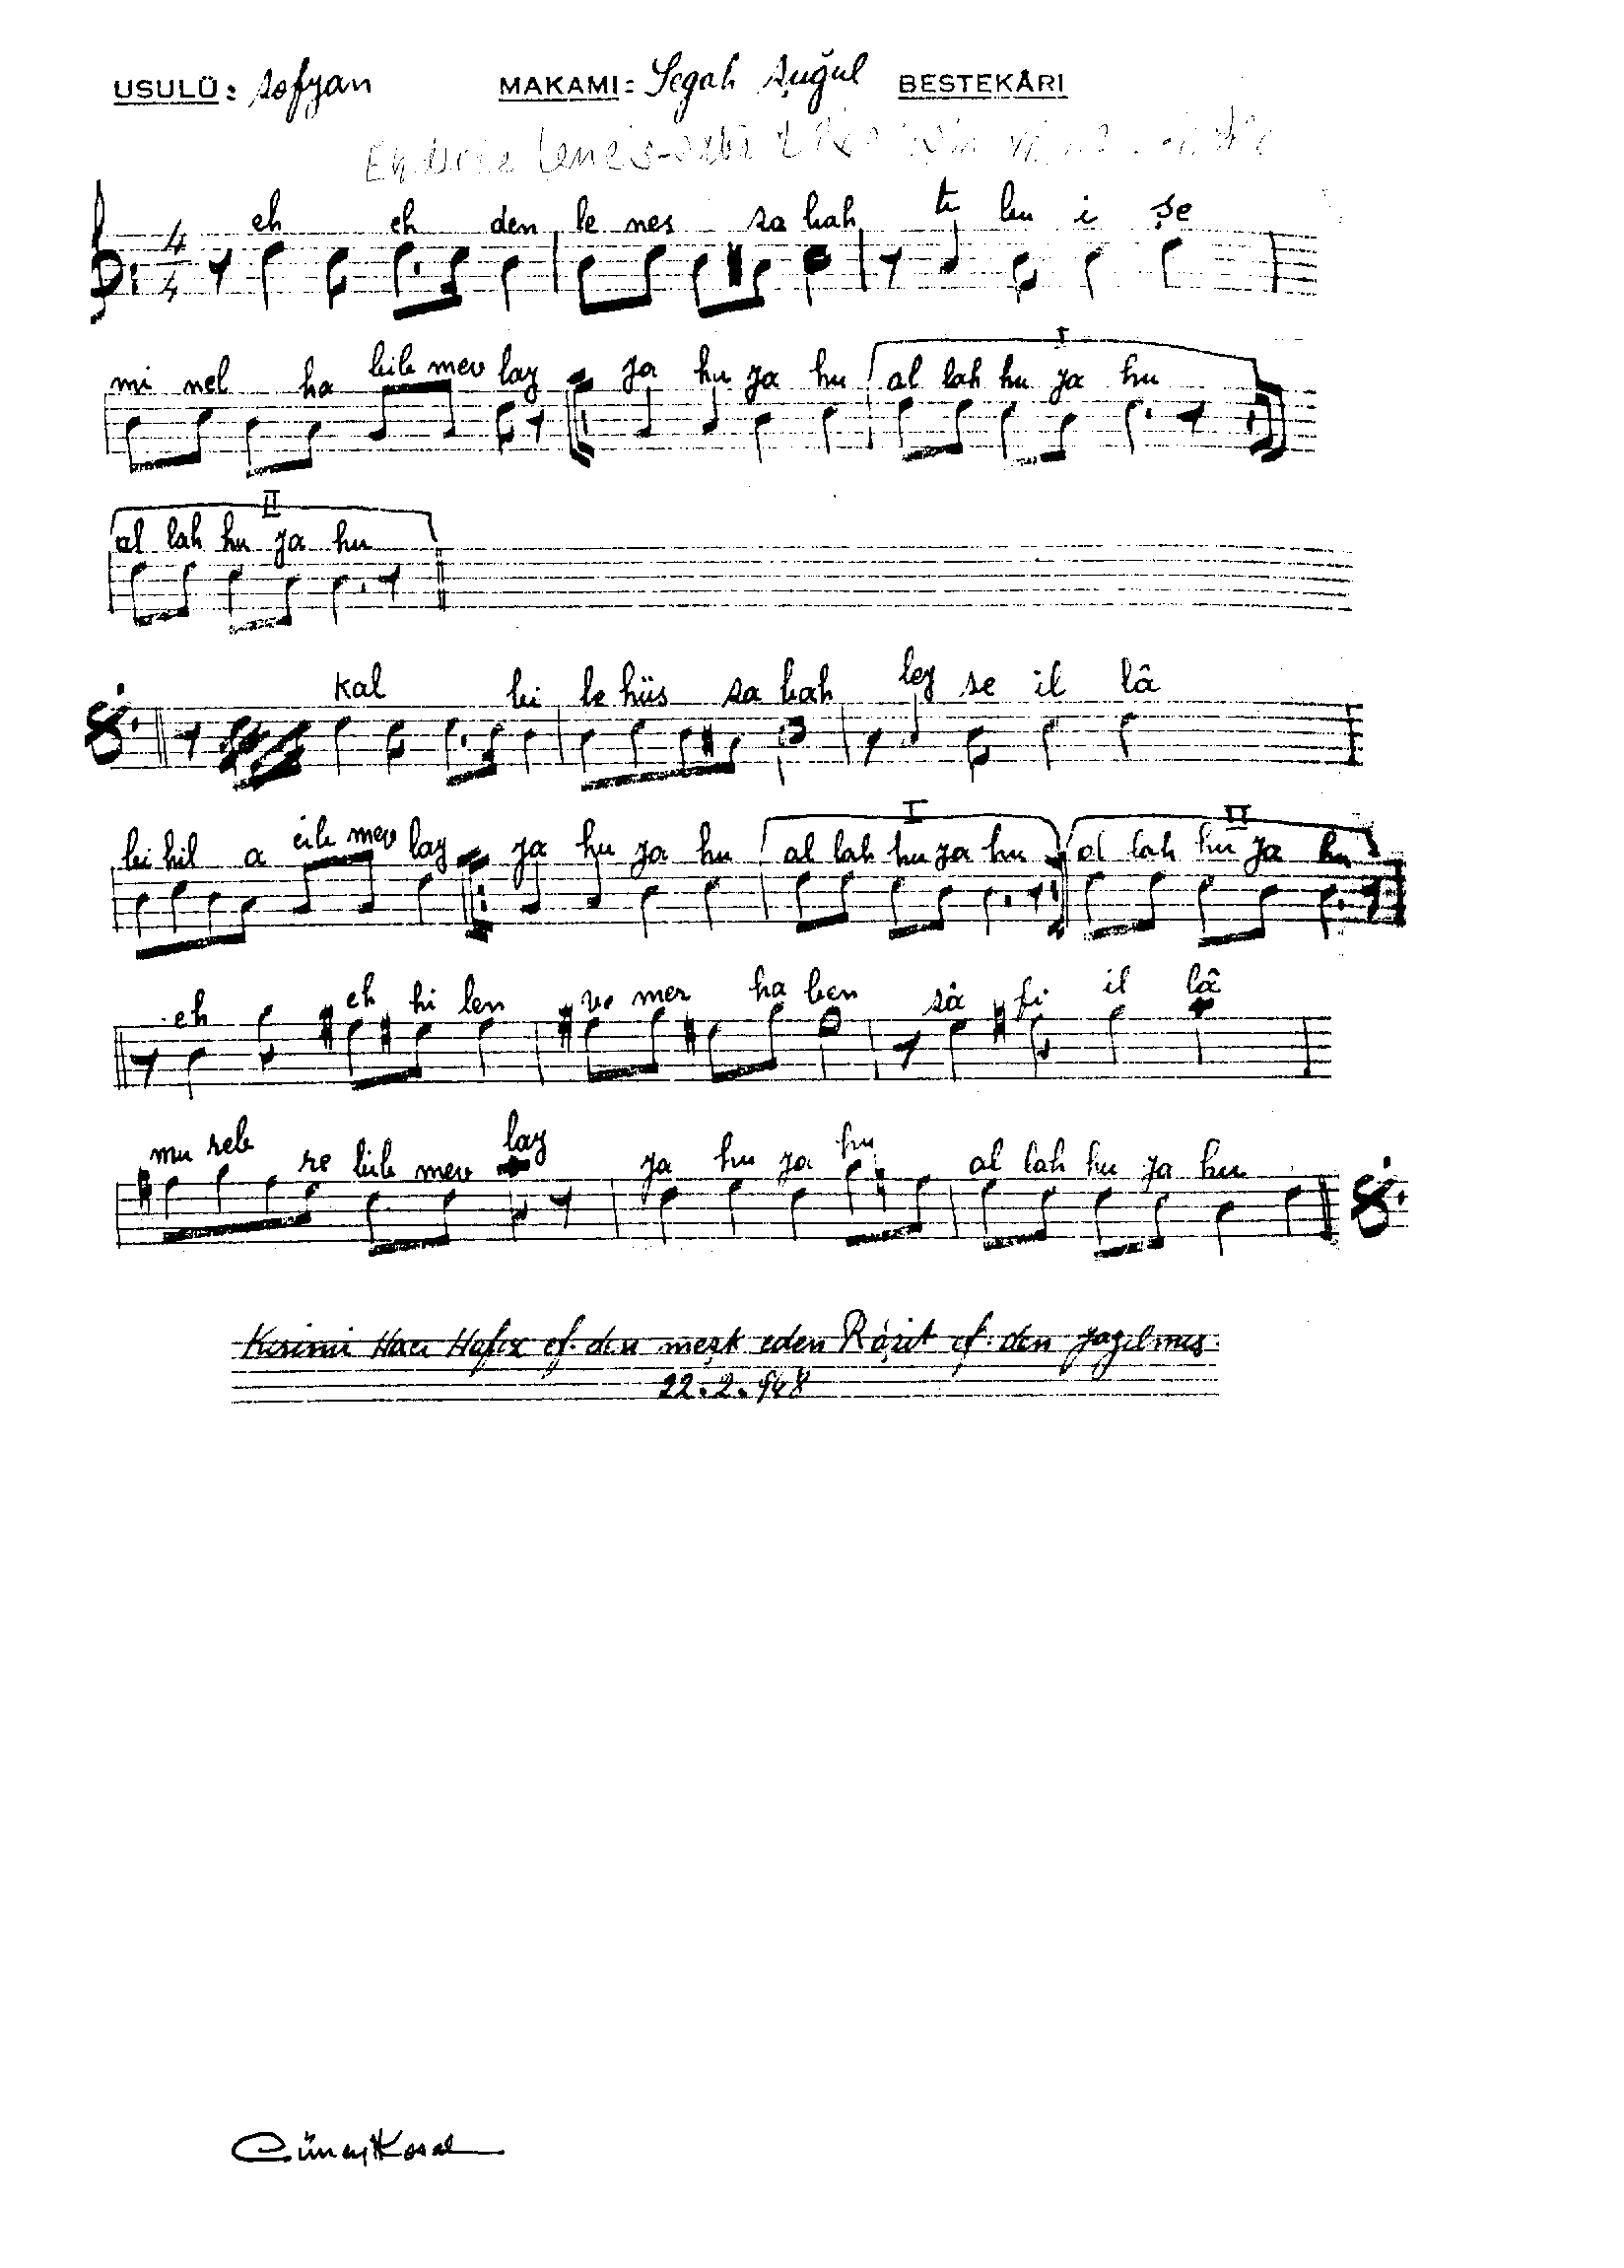 USULÜ: Sofyan MAKAMI: Segah Şuğul BESTEKÂRI
4
4
eh eh den le nes sa bah tı bu i şe
mi nel ha bib mev lay ya hu ya hu I al lah hu ya hu
II
al lah hu ya hu
kal bi le hüs sa bah ley se il lâ
bi hil a cib mev lay ya hu ya hu I al lah hu ya hu II al lah hu ya hu
eh eh hi len ve mer ha ben sâ fi il lâ
mu reb re bib mev lay ya hu ya hu al lah hu ya hu
Kırimi Hacı Hafız ef. den meşk eden Râşit ef. den yazılmış.
22.2.948
Güney Kosal